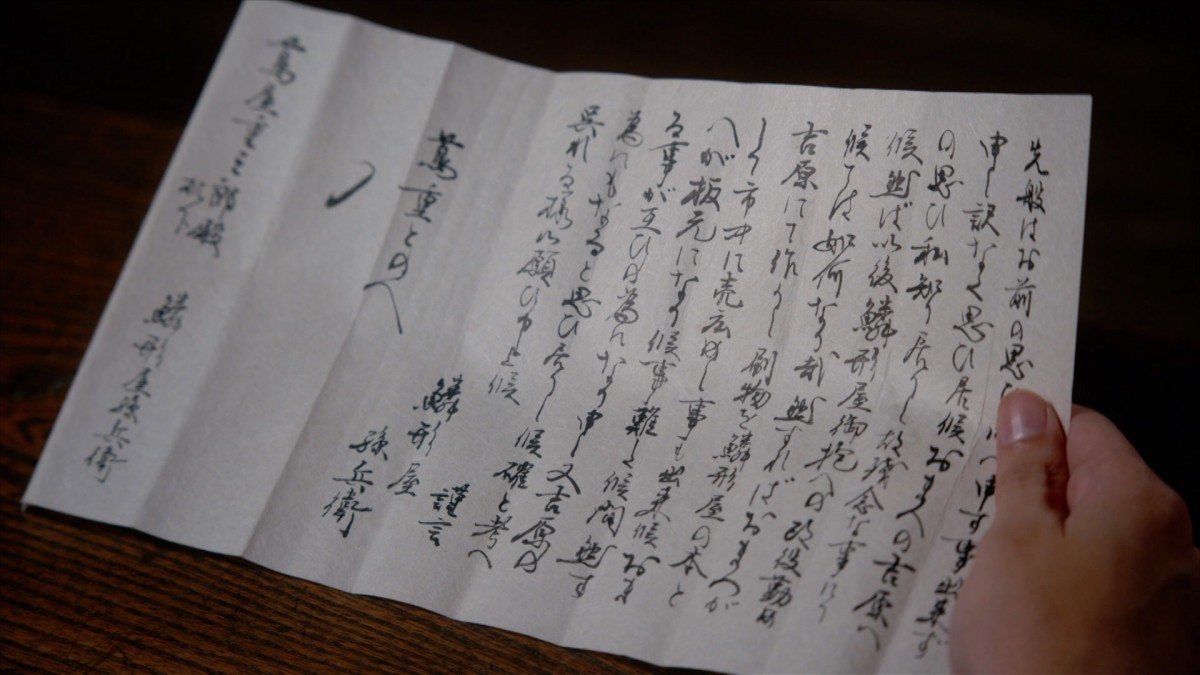 先般はお前の思ひ 申す事出来ず
申し訳なく思ひ居候おまへの吉原へ
の思ひ私知り居りし故残念な事にて
候然ば以後鱗形屋御抱への改役勤め
候ては如何なり哉然すればおまへが
吉原にて作りし刷物を鱗形屋の本と
して市中に売広めし事も出来候おま
へが板元になり候事難しく候間然す
る事が互ひの為になり申し又吉原の
為にもなると思ひ居りし候確と考へ
呉れる様に願ひ申上候
謹言
鱗形屋
孫兵衛
蔦重とのへ
鱗形屋孫兵衛
蔦屋重三郎殿